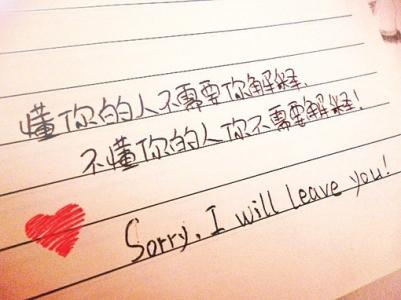 懂你的人不需要你解释.
不懂你的人你不需要解释!
Sorry, I will leave you!